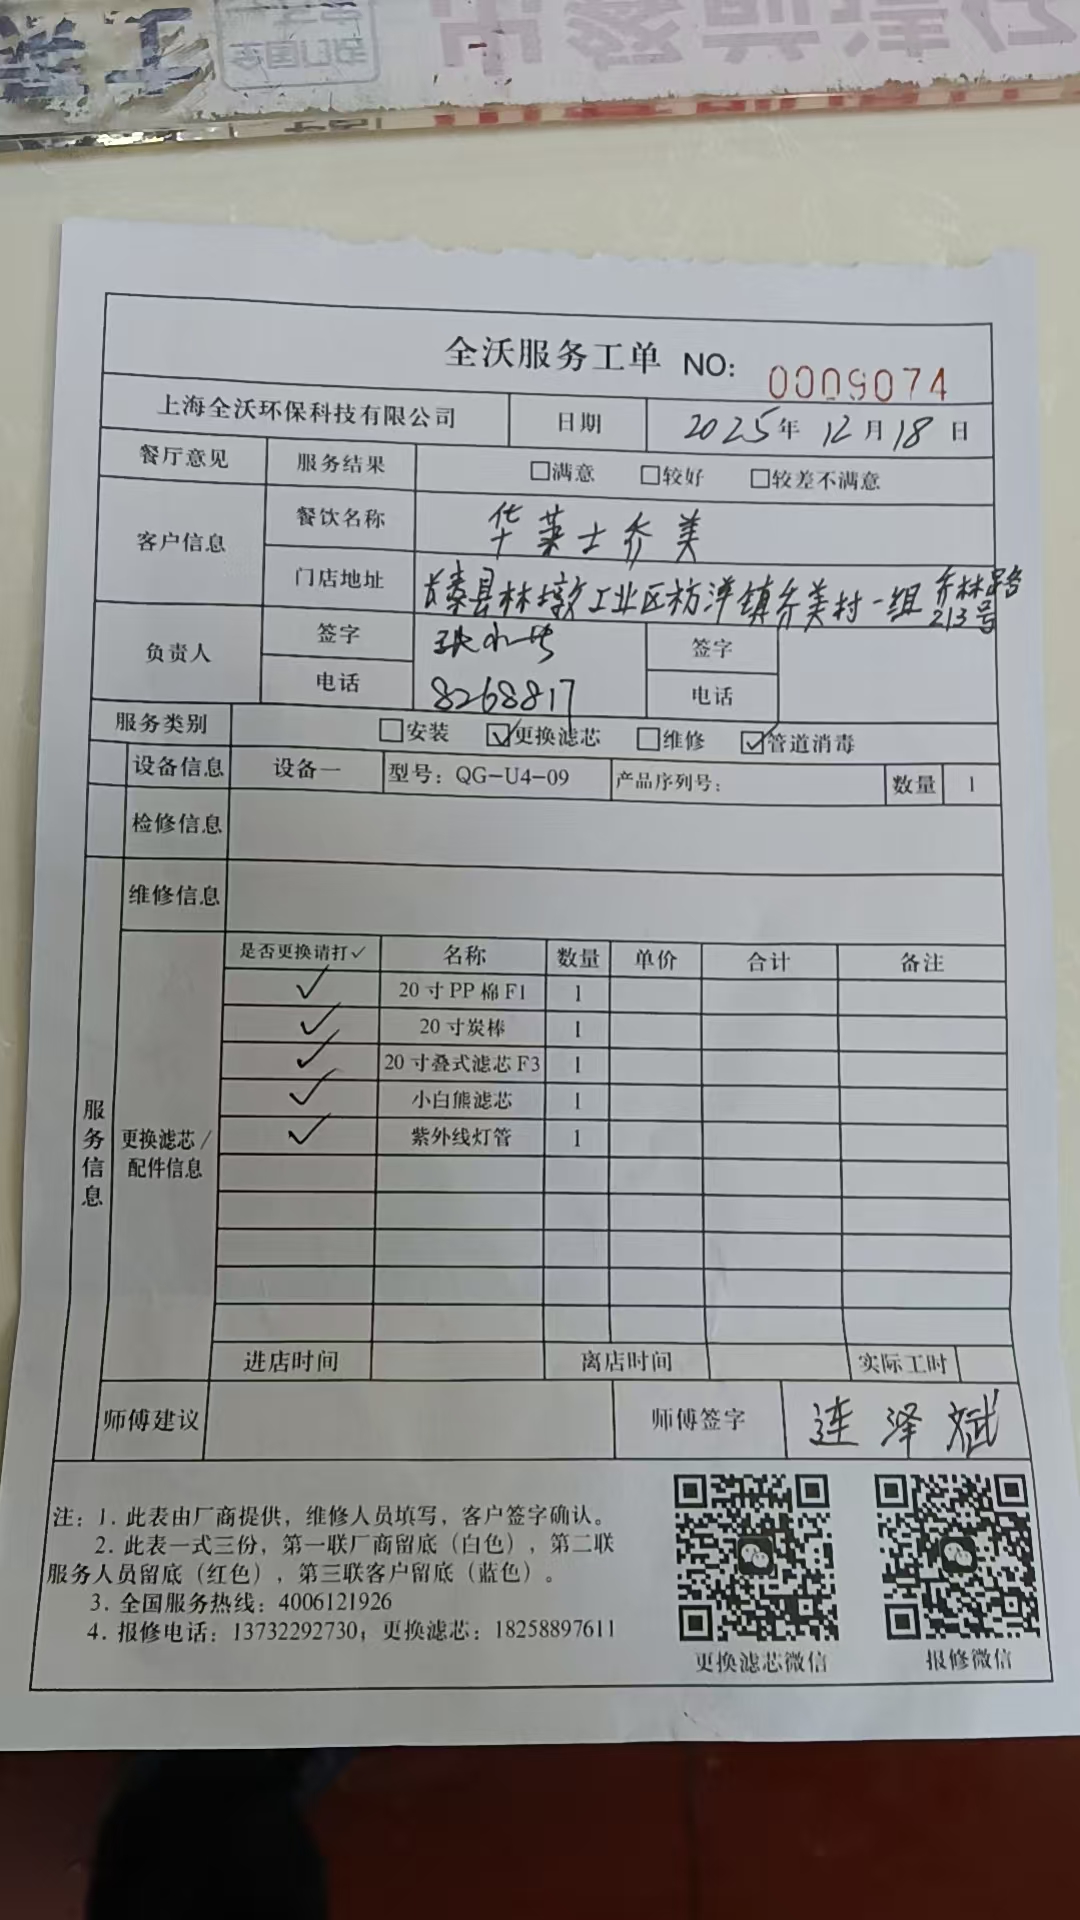 全沃服务工单 NO: 0009074
上海全沃环保科技有限公司 日期 2025年12月18日
餐厅意见 服务结果 □满意 □较好 □较差不满意
客户信息 餐饮名称 华莱士乔美
门店地址 长泰县林墩工业区枋洋镇乔美村一组 乔林路
213号
负责人 签字 签字
电话 8268817 电话
服务类别 □安装 ☑更换滤芯 □维修 ☑管道消毒
设备信息 设备一 型号：QG-U4-09 产品序列号： 数量 1
检修信息
维修信息
是否更换请打✓ 名称 数量 单价 合计 备注
✓ 20寸PP棉F1 1
✓ 20寸炭棒 1
✓ 20寸叠式滤芯F3 1
✓ 小白熊滤芯 1
✓ 紫外线灯管 1
服务信息
更换滤芯/
配件信息
进店时间 离店时间 实际工时
师傅建议 师傅签字 连泽斌
注：1. 此表由厂商提供，维修人员填写，客户签字确认。
2. 此表一式三份，第一联厂商留底（白色），第二联
服务人员留底（红色），第三联客户留底（蓝色）。
3. 全国服务热线：4006121926
4. 报修电话：13732292730；更换滤芯：18258897611
更换滤芯微信 报修微信